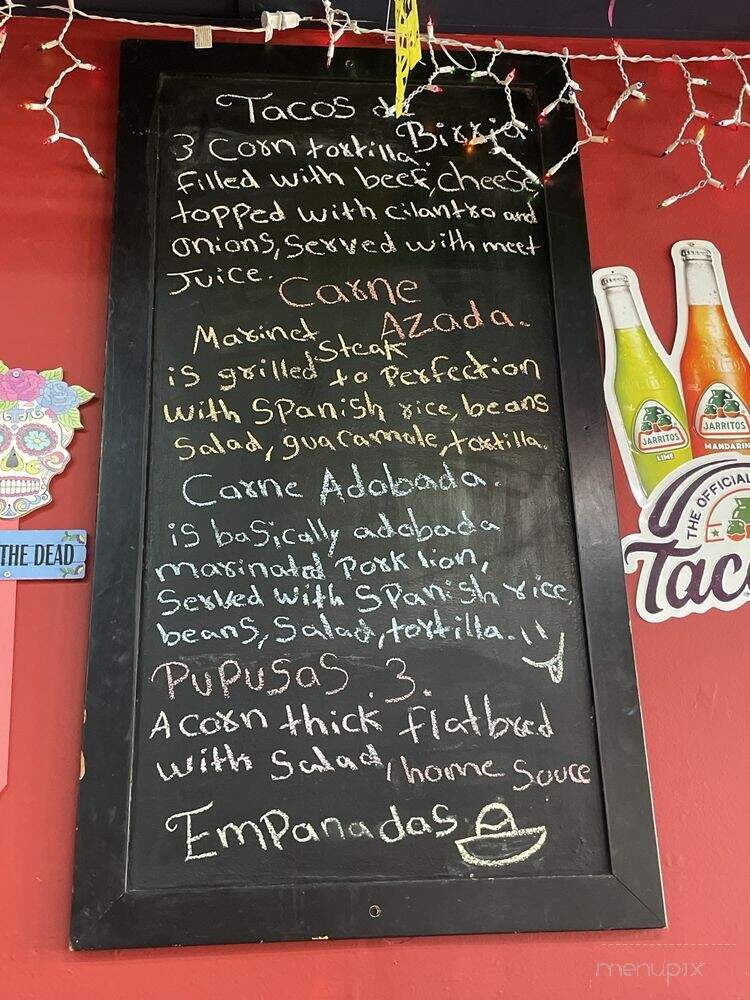 Tacos de
Birria
3 Corn tortilla.
filled with beef, cheese
topped with cilantro and
onions, Served with meet
Juice.
Carne
AZada.
Marinet Steak
is grilled to Perfection
with SPanish rice, beans
Salad, guacamole, tortilla.
Carne Adobada.
is basically adobada
marinated Pork lion,
Served with SPanish rice,
beans, Salad, tortilla.
PuPuSaS .3.
A corn thick flatbred
with Salad, home Souce
EmPanadas
THE DEAD
JARRITOS
LIME
JARRITOS
MANDARIN
THE OFFICIAL
Tac
menupix